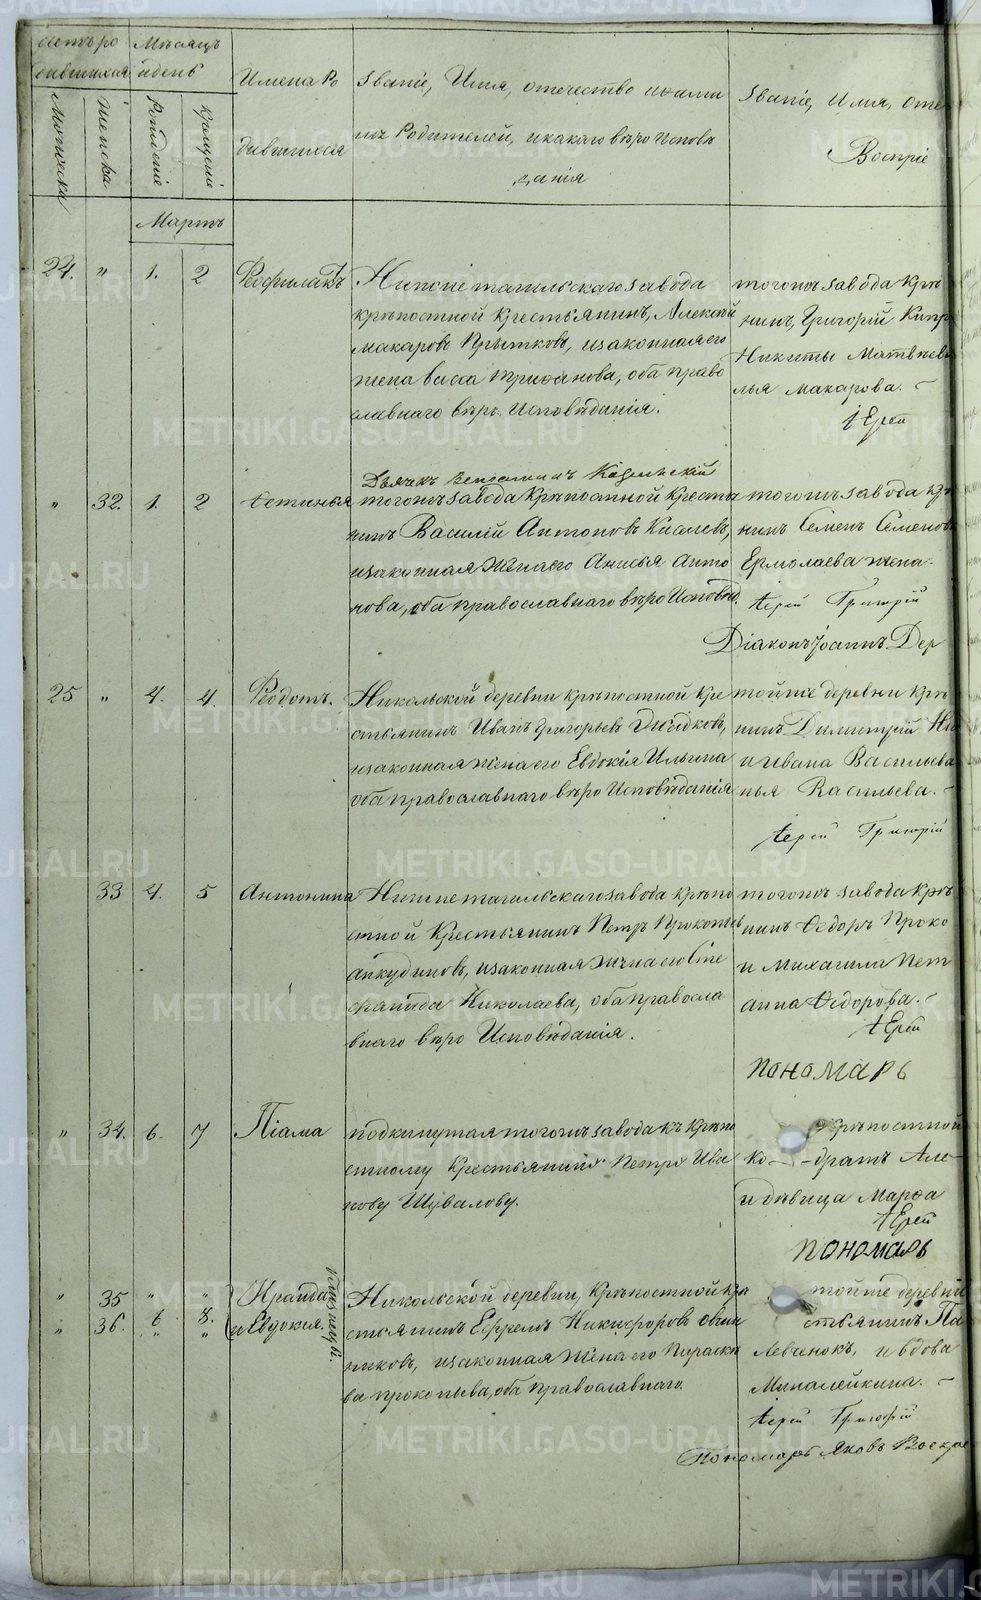 Мѣсяцъ
и день
Имена Ро
дившихся
Званіе, Имя, отечество и фами
лія Родителей, и какаго вѣро Исповѣ
данія
Званіе, Имя, оте
Воспріе
Мужеска
Женска
Рожденіе
Крещеніе
Мартъ
24. " 1. 2 Феофилактъ
Нижне тагильскаго завода
крѣпостной крестьянинъ, Алексѣй
макаровъ Прытковъ, и законная его
жена васса трифанова, оба право
славнаго вѣро. Исповѣданія.
тогожъ завода крѣ
нинъ, Григорій Кипр
Никиты Матвѣева
лья макарова. -
Іерей
Дьячк Веніаминъ
" 32. 1. 2 Устинья
тогожъ завода Крѣпостной Кресть
нинъ Василій Антоновъ Киселевъ,
и законная Жена его Анисья Анто
нова, оба православнаго вѣро Исповѣд.
тогожъ завода крѣ
нинъ Семенъ Семенов
Ермолаева жена.
Іерей Григорій
Діаконъ Іоаннъ Дер
25 " 4. 4. Феодотъ.
Никольской деревни крѣпостной Кре
стьянинъ Иванъ Григорьевъ
и законная жена его Евдокія Ильина
оба православнаго вѣро Исповѣданія
тойже деревни крѣ
нинъ Димитрій
и ивана Васильева
нья Васильева. -
Іерей Григорій
33 4. 5 Антонина
Нижне тагильскаго завода крѣпо
стной Крестьянинъ Петръ Прокопьев
анкудиновъ, и законная жена его Сте
фанида Николаева, оба правосла
внаго вѣро Исповѣданія.
тогожъ завода Крѣ
нинъ Федоръ Проко
и Михаила Пет
анна Федорова. -
Іерей
Пономарь
" 34. 6. 7 Піама
подкинутая тогожъ завода къ крѣпо
стному Крестьянину Петру Ива
нову Шувалову.
крѣпостной
Ко - дратъ Але
и дѣвица Марфа
Іерей
Пономарь
" 35 " "
" 36. 6. 8. Ираида
и Евдокія.
близнецы.
Никольской деревни, Крѣпостной кре
стьянинъ Ефремъ Никифоровъ овчин
никовъ, и законная жена его Параске
ва прокопьева, оба православнаго.
тойже деревни
стьянинъ Па
Левченокъ, и вдова
Миналейкина. -
Іерей Григорій
Пономарь Яковъ Воскре
METRIKI.GASO-URAL.RU